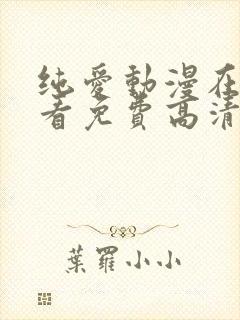 纯愛動漫在
看免費高清
葉羅小小